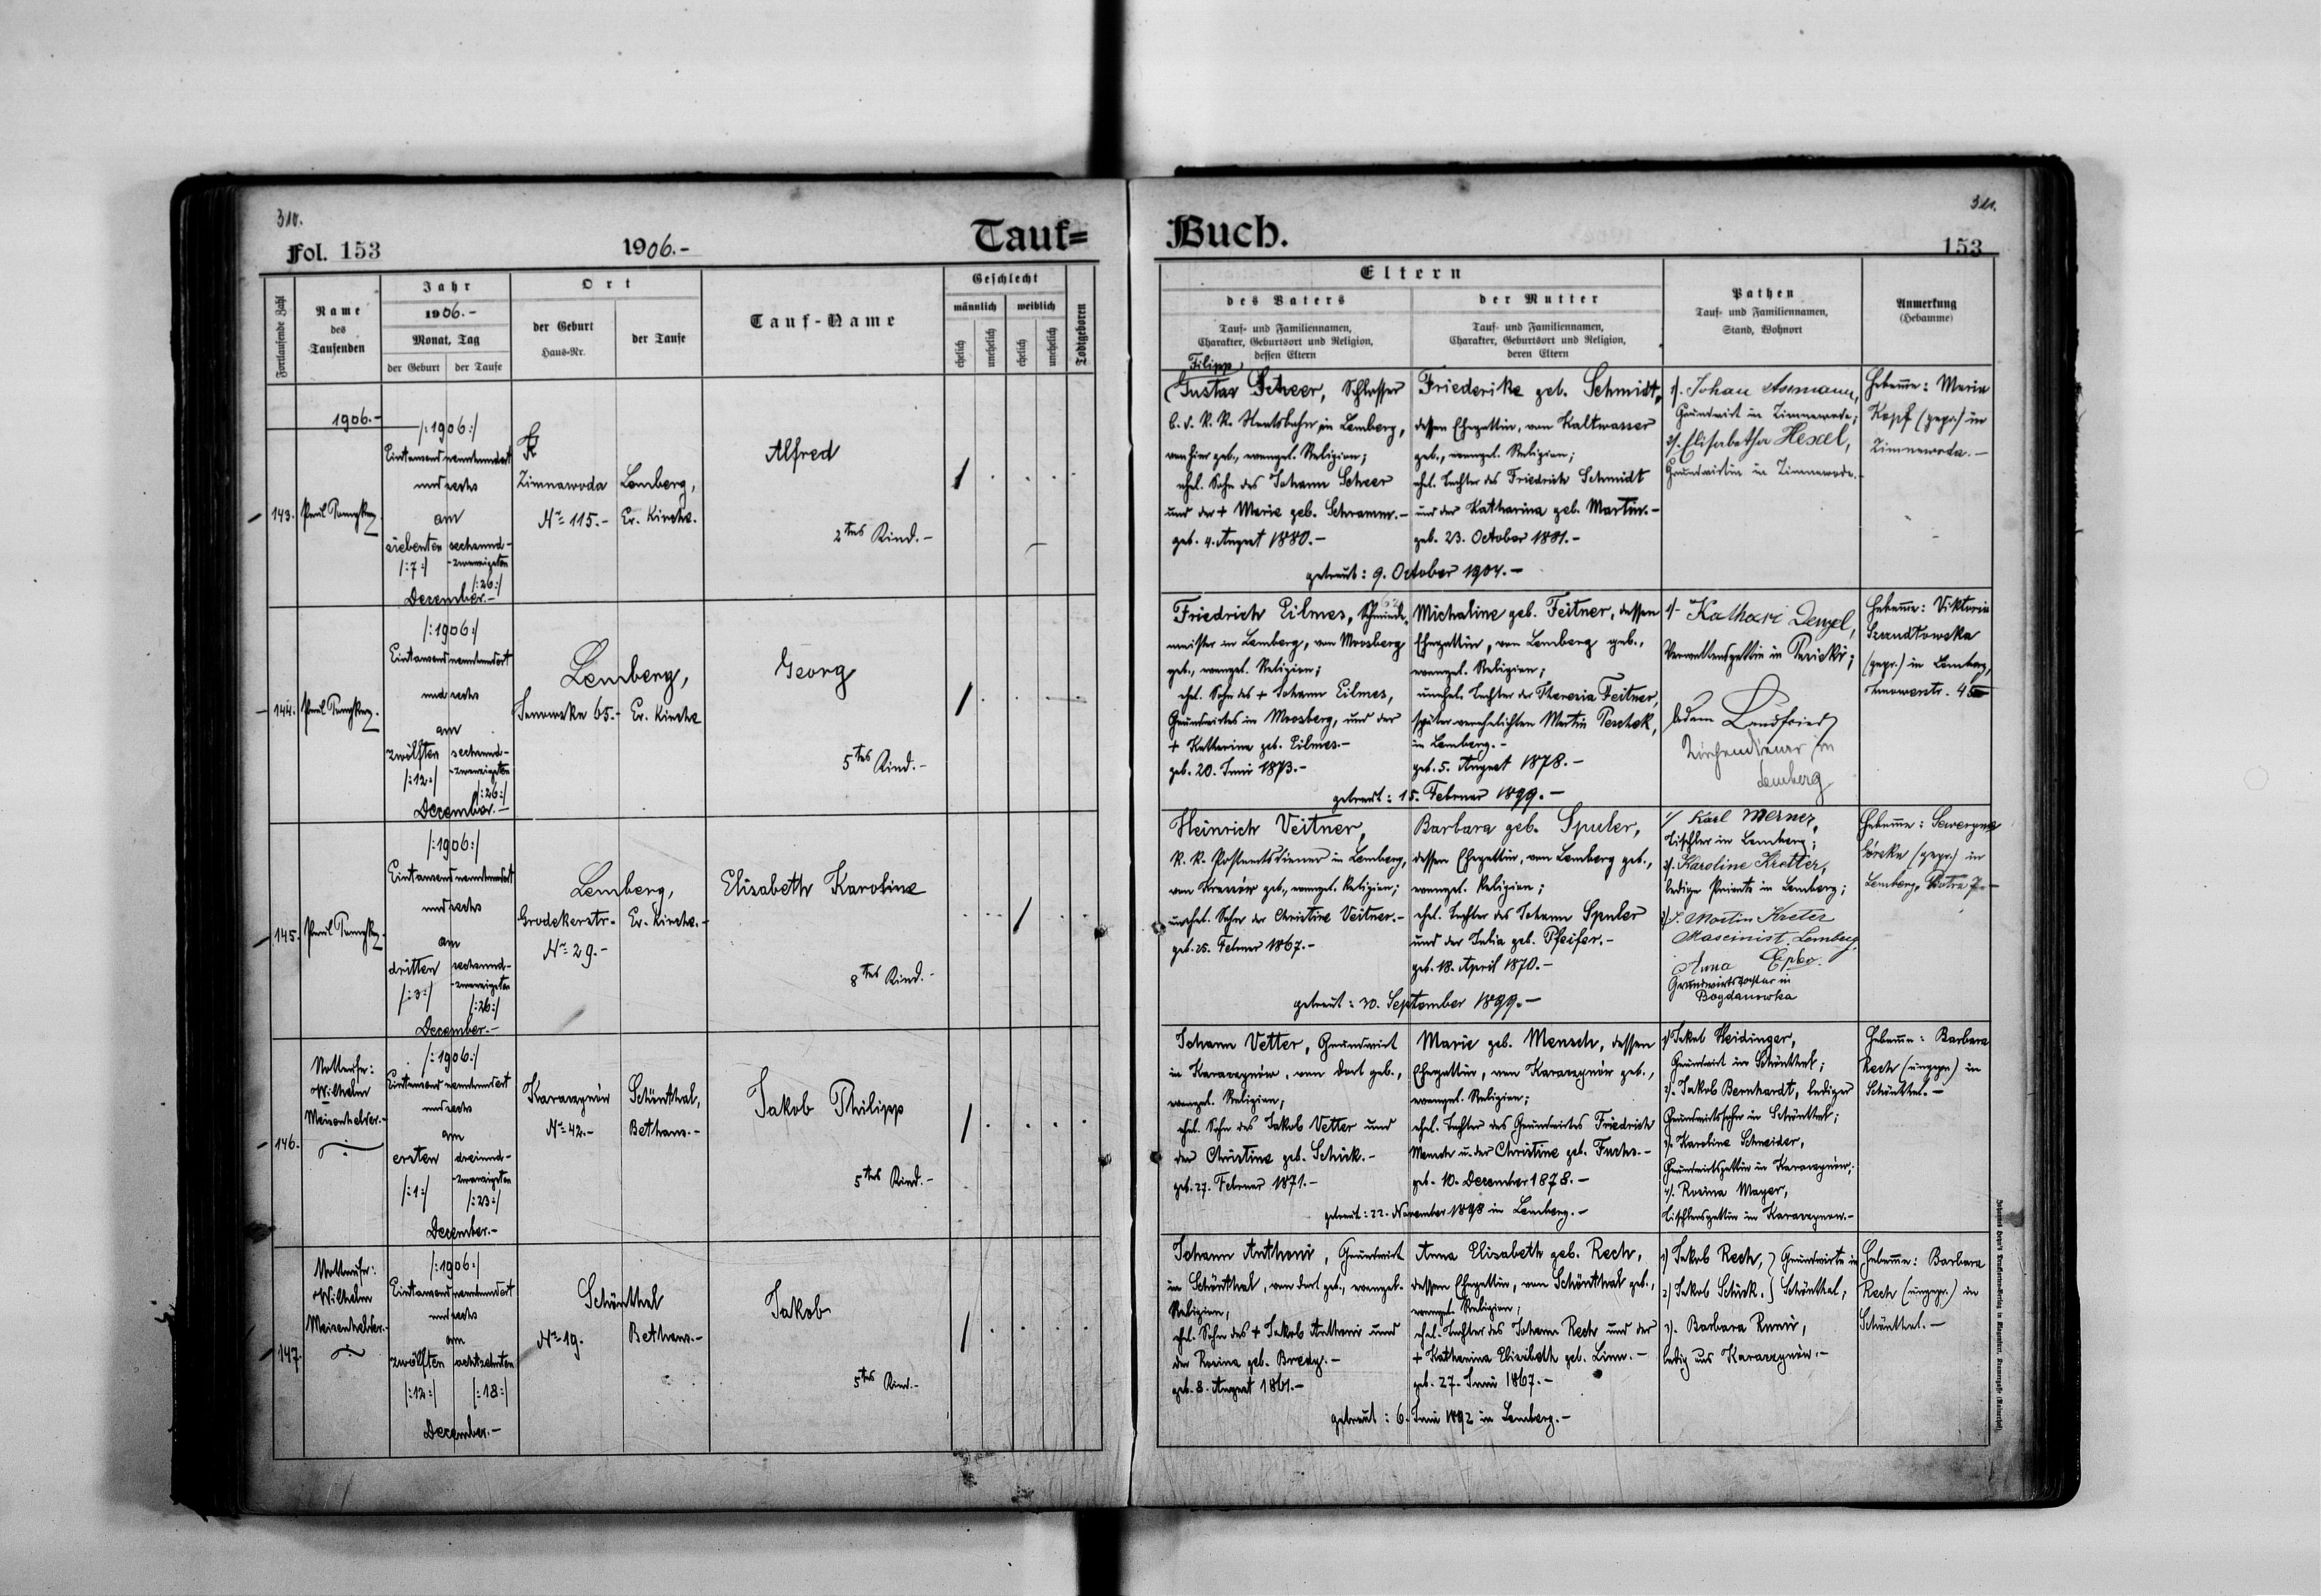 310.
Fol. 153
1906.-
Tauf=
Fortlaufende Zahl
Name
des
Taufenden
Jahr
1906.-
Monat, Tag
der Geburt
der Taufe
Ort
der Geburt
Haus-Nr.
der Taufe
Tauf-Name
Geschlecht
männlich
weiblich
ehelich
unehelich
ehelich
unehelich
Todtgeboren
1906.-
143.
/:1906:/
Eintausend neunhundert
und sechs
am
siebenten
/:7:/
sechsund-
-zwanzigsten
/:26:/
December.-
Zimnawoda
Nr 115.-
Lemberg,
Ev. Kirche.
Alfred
2tes Kind.-
144.
/:1906:/
Eintausend neunhundert
und sechs
am
zwölften
/:12:/
sechsund-
-zwanzigsten
/:26:/
December.-
Lemberg,
Janowska 65.-
Ev. Kirche
Georg
5tes Kind.-
145.
/:1906:/
Eintausend neunhundert
und sechs
am
dritten
/:3:/
sechsund-
-zwanzigsten
/:26:/
December.-
Lemberg,
Grodekerstr.
Nr 29.-
Ev. Kirche.-
Elisabeth Karoline
8tes Kind.-
146.
Wilhelm
Meisenhelder.-
/:1906:/
Eintausend neunhundert
und sechs
am
ersten
/:1:/
dreiund-
-zwanzigsten
/:23:/
December.-
Karaczynów
Nr 42.-
Schönthal,
Bethaus.-
Jakob Philipp
5tes Kind.-
147.
Wilhelm
Meisenhelder.-
/:1906:/
Eintausend neunhundert
und sechs
am
zwölften
/:12:/
achtzehnten
/:18:/
December.-
Schönthal
Nr 19.
Bethaus.-
Jakob
5tes Kind.-
Buch.
311.
153
Eltern
des Vaters
Tauf- und Familiennamen,
Charakter, Geburtsort und Religion,
dessen Eltern
der Mutter
Tauf- und Familiennamen,
Charakter, Geburtsort und Religion,
deren Eltern
Pathen
Tauf- und Familiennamen,
Stand, Wohnort
Anmerkung
(Hebamme)
Filipp
Gustav Scheer, Schlosser
b. d. K. K. Staatsbahn in Lemberg,
von hier geb., evangel. Religion;
ehel. Sohn des Johann Scheer
und der + Marie geb. Schramm.-
geb. 4. August 1880.-
Friederike geb. Schmidt,
dessen Ehegattin, von Kaltwasser
geb., evangel. Religion;
ehel. Tochter des Friedrich Schmidt
und der Katharina geb. Martin.-
geb. 23. October 1881.-
getraut: 9. October 1904.-
1/. Johan Assmann,
Grundwirt in Zimnawoda;
2/. Elisabetha Hexel,
Grundwirtin in Zimnawoda.-
Hebamme: Maria
Kopf (gepr.) in
Zimnawoda.-
Friedrich Eilmes, Schmiede-
meister in Lemberg, von Moosberg
geb., evangel. Religion;
ehel. Sohn des + Johann Eilmes,
Grundwirtes in Moosberg, und der
+ Katharina geb. Eilmes.-
geb. 20. Juni 1873.-
Michaline geb. Feitner, dessen
Ehegattin, von Lemberg geb.,
evangel. Religion;
unehel. Tochter der Theresia Feitner,
später verehelichten Martin Peschek,
in Lemberg.-
geb. 5. August 1878.-
getraut: 15. Februar 1899.-
1/- Kathari Denzel,
Adam Landfried
Kirchendiener in
Lemberg
Hebamme: Viktoria
(gepr.) in Lemberg,
Heinrich Veitner,
K. K. Postamtsdiener in Lemberg,
geb., evangel. Religion;
unehel. Sohn der Christine Veitner.-
geb. 25. Februar 1867.-
Barbara geb. Spuler,
dessen Ehegattin, von Lemberg geb.,
evangel. Religion;
ehel. Tochter des Johann Spuler
und der Julia geb. Pfeifer.-
geb. 18. April 1870.-
getraut: 30. September 1899.-
1/ Karl Merner,
Tischler in Lemberg;
2/. Karoline Kretter,
ledige Private in Lemberg;
3/. Martin Kreter
Mascinist, Lemberg
Anna
Grundwirtstochter in
Bogdanowka
Hebamme: Seweryna
Górska (gepr.) in
Lemberg,
Johann Vetter, Grundwirt
in Karaczynów, von dort geb.,
evangel. Religion;
ehel. Sohn des Jakob Vetter und
der Christine geb. Schick.-
geb. 27. Februar 1871.-
Marie geb. Mensch, dessen
Ehegattin, von Karaczynów geb.,
evangel. Religion;
ehel. Tochter des Grundwirtes Friedrich
Mensch u. der Christine geb. Fuchs.-
geb. 10. December 1878.-
getraut: 22. November 1898 in Lemberg.-
1/ Jakob Heidinger,
Grundwirt in Schönthal;
2/. Jakob Bernhardt, lediger
Grundwirtssohn in Schönthal;
3/. Karoline Schneider,
Grundwirtsgattin in Karaczynów;
4/. Rosina Mayer,
Tischlersgattin in Karaczynow.-
Hebamme: Barbara
Rech (ungepr.) in
Schönthal.-
Johann Anthoni, Grundwirt
in Schönthal, von dort geb., evangel.
Religion;
ehel. Sohn des + Jakob Anthoni und
der Rosina geb. Bredy.-
geb. 8. August 1861.-
Anna Elisabeth geb. Rech,
dessen Ehegattin, von Schönthal geb.,
evangel. Religion;
ehel. Tochter des Johann Rech und der
+ Katharina Elisabeth geb. Linn.-
geb. 27. Juni 1867.-
getraut: 6. Juni 1892 in Lemberg.-
1) Jakob Rech, } Grundwirte in
2) Jakob Schick. } Schönthal;
3). Barbara
ledig aus Karaczynów.-
Hebamme: Barbara
Rech (ungepr.) in
Schönthal.-